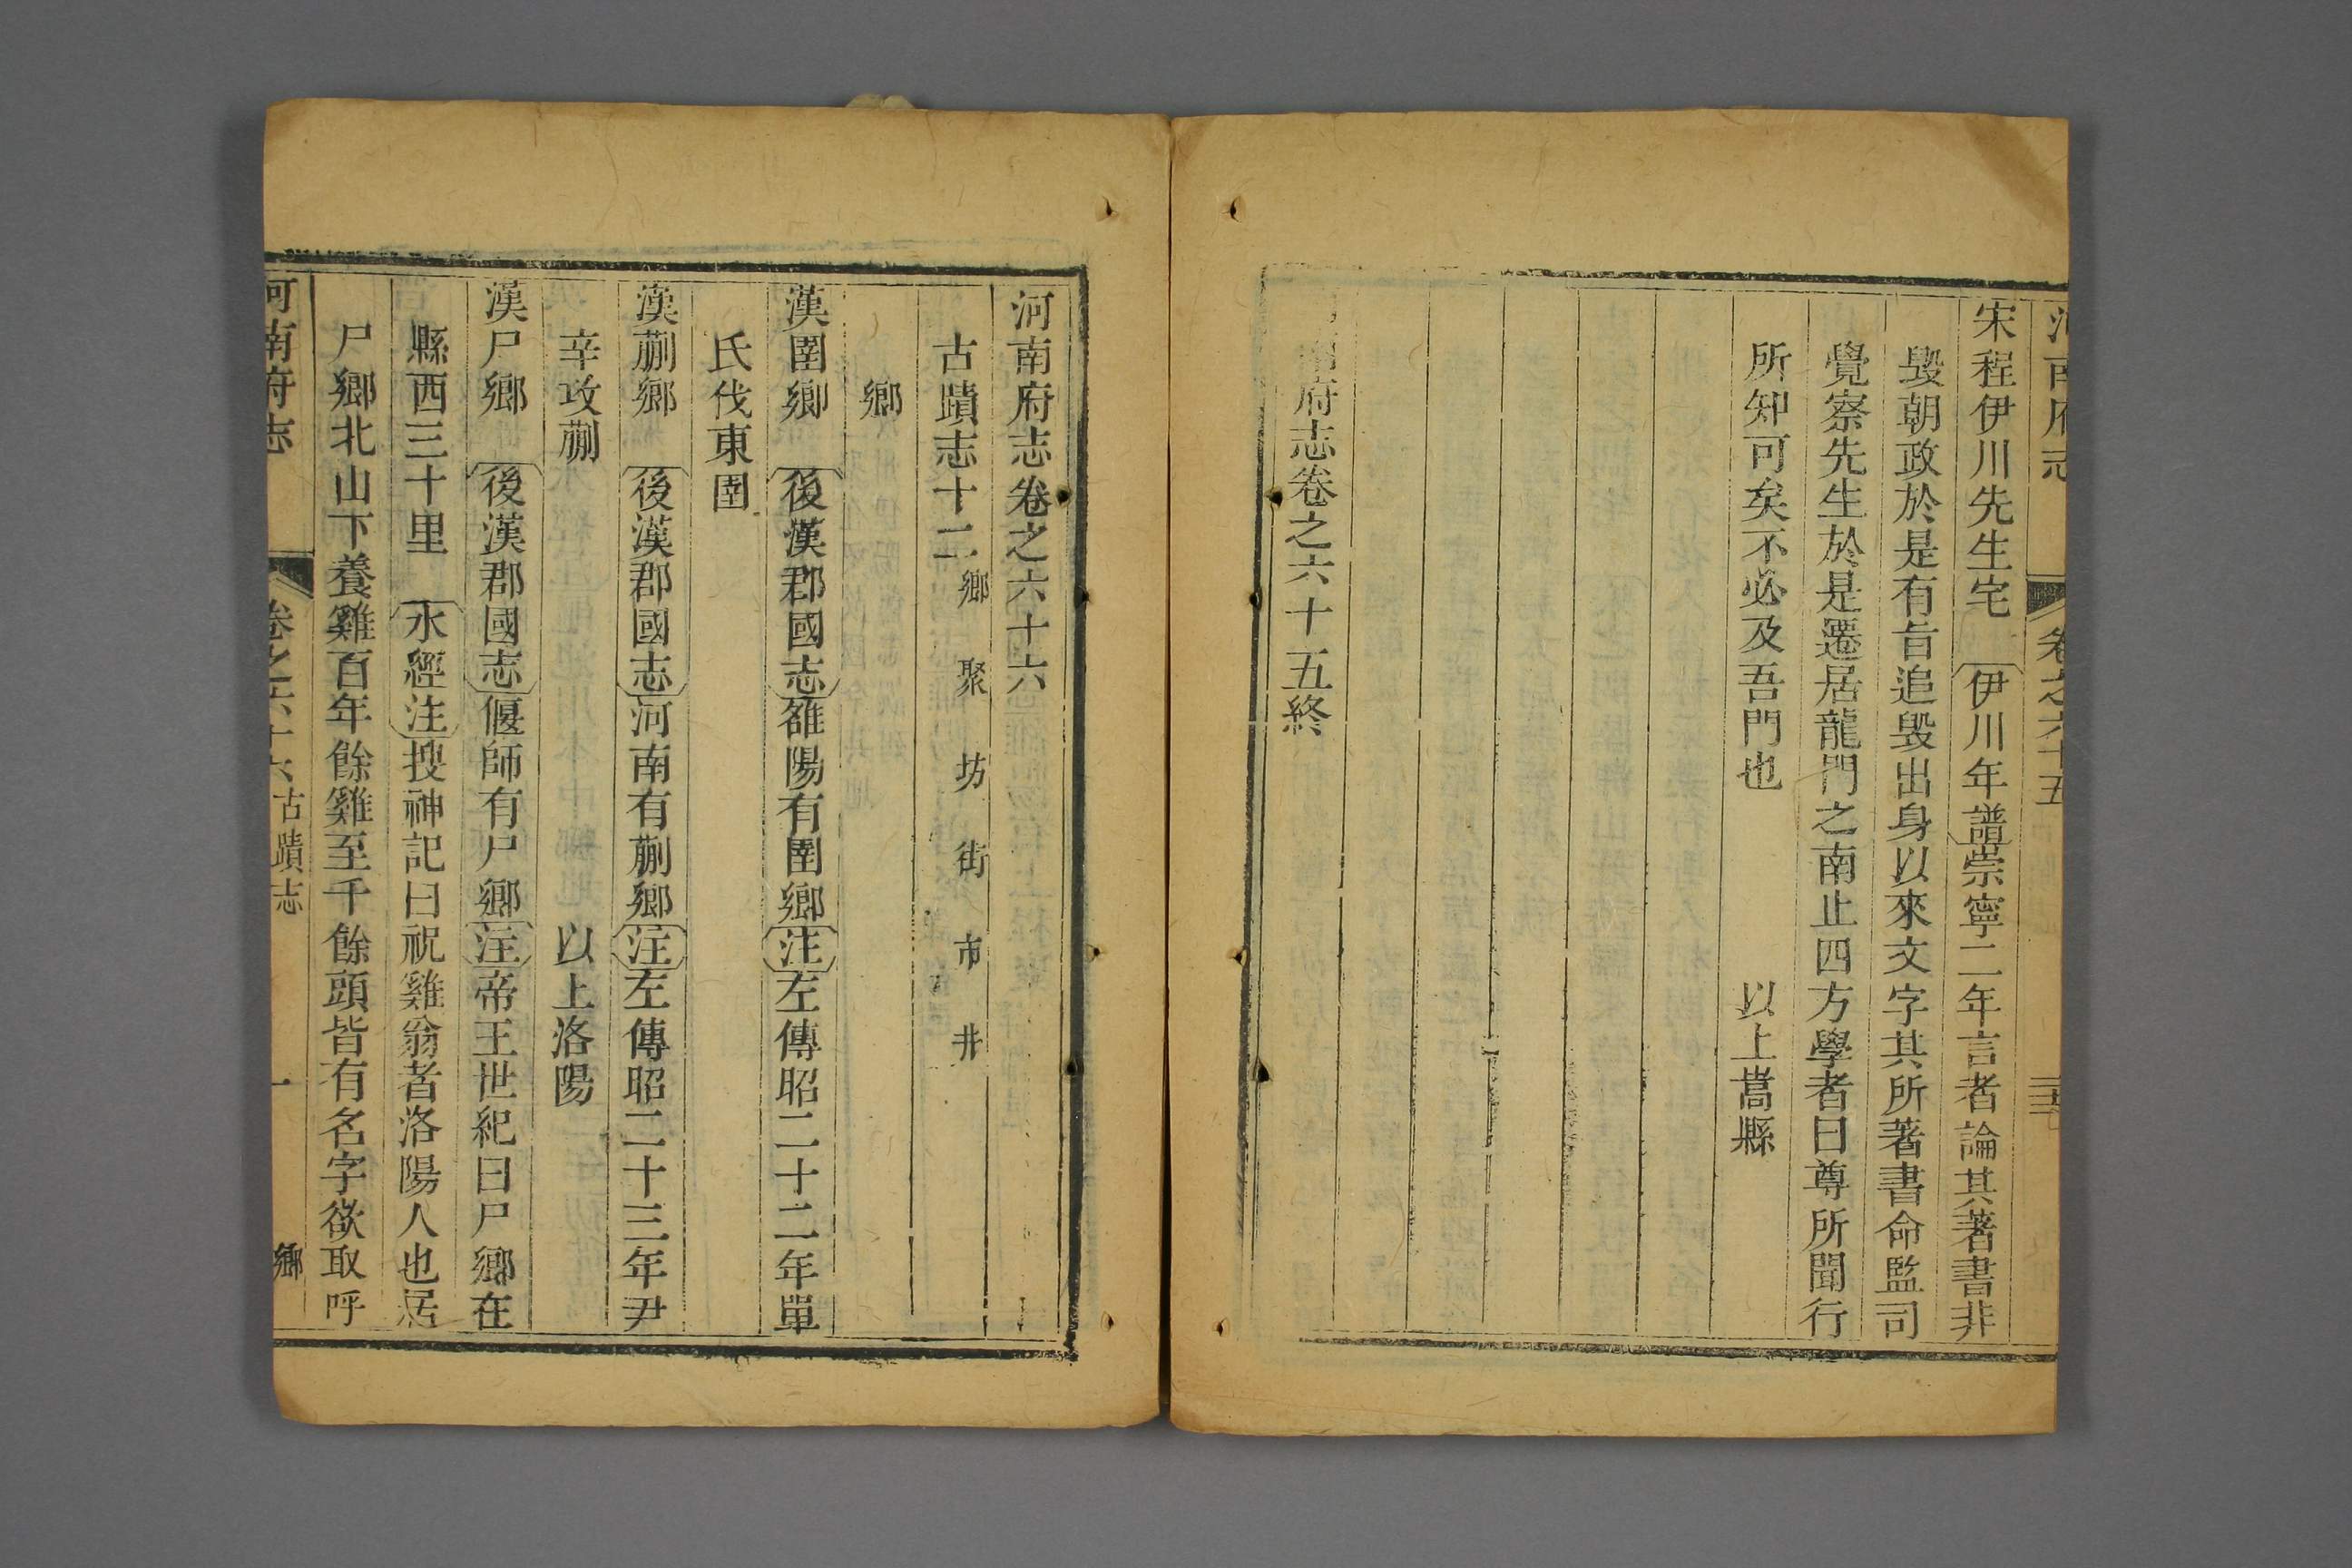 宋程伊川先生宅　伊川年譜崇寧二年言者論其著書非
毀朝政於是有旨追毀出身以來文字其所著書命監司
覺察先生於是遷居龍門之南止四方學者曰尊所聞行
所知可矣不必及吾門也　以上嵩縣
南府志卷之六十五終
河南府志卷之六十六
古蹟志十二 鄉 聚 坊 街 市 井
鄉
漢圉鄉　後漢郡國志雒陽有圉鄉注左傳昭二十二年單
氏伐東圉
漢蒯鄉　後漢郡國志河南有蒯鄉注左傳昭二十三年尹
辛攻蒯　以上洛陽
漢尸鄉　後漢郡國志偃師有尸鄉注帝王世紀曰尸鄉在
縣西三十里　水經注搜神記曰祝雞翁者洛陽人也居
尸鄉北山下養雞百年餘雞至千餘頭皆有名字欲取呼
河南府志　卷之六十六 古蹟志　一　鄉